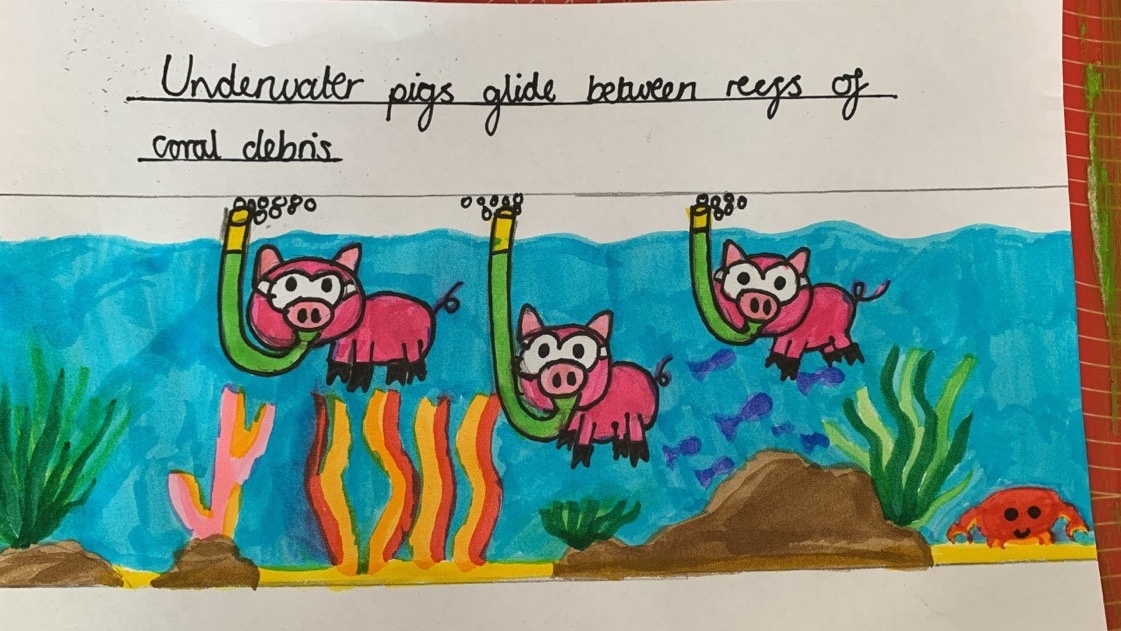 Underwater pigs glide between reefs of
coral debris